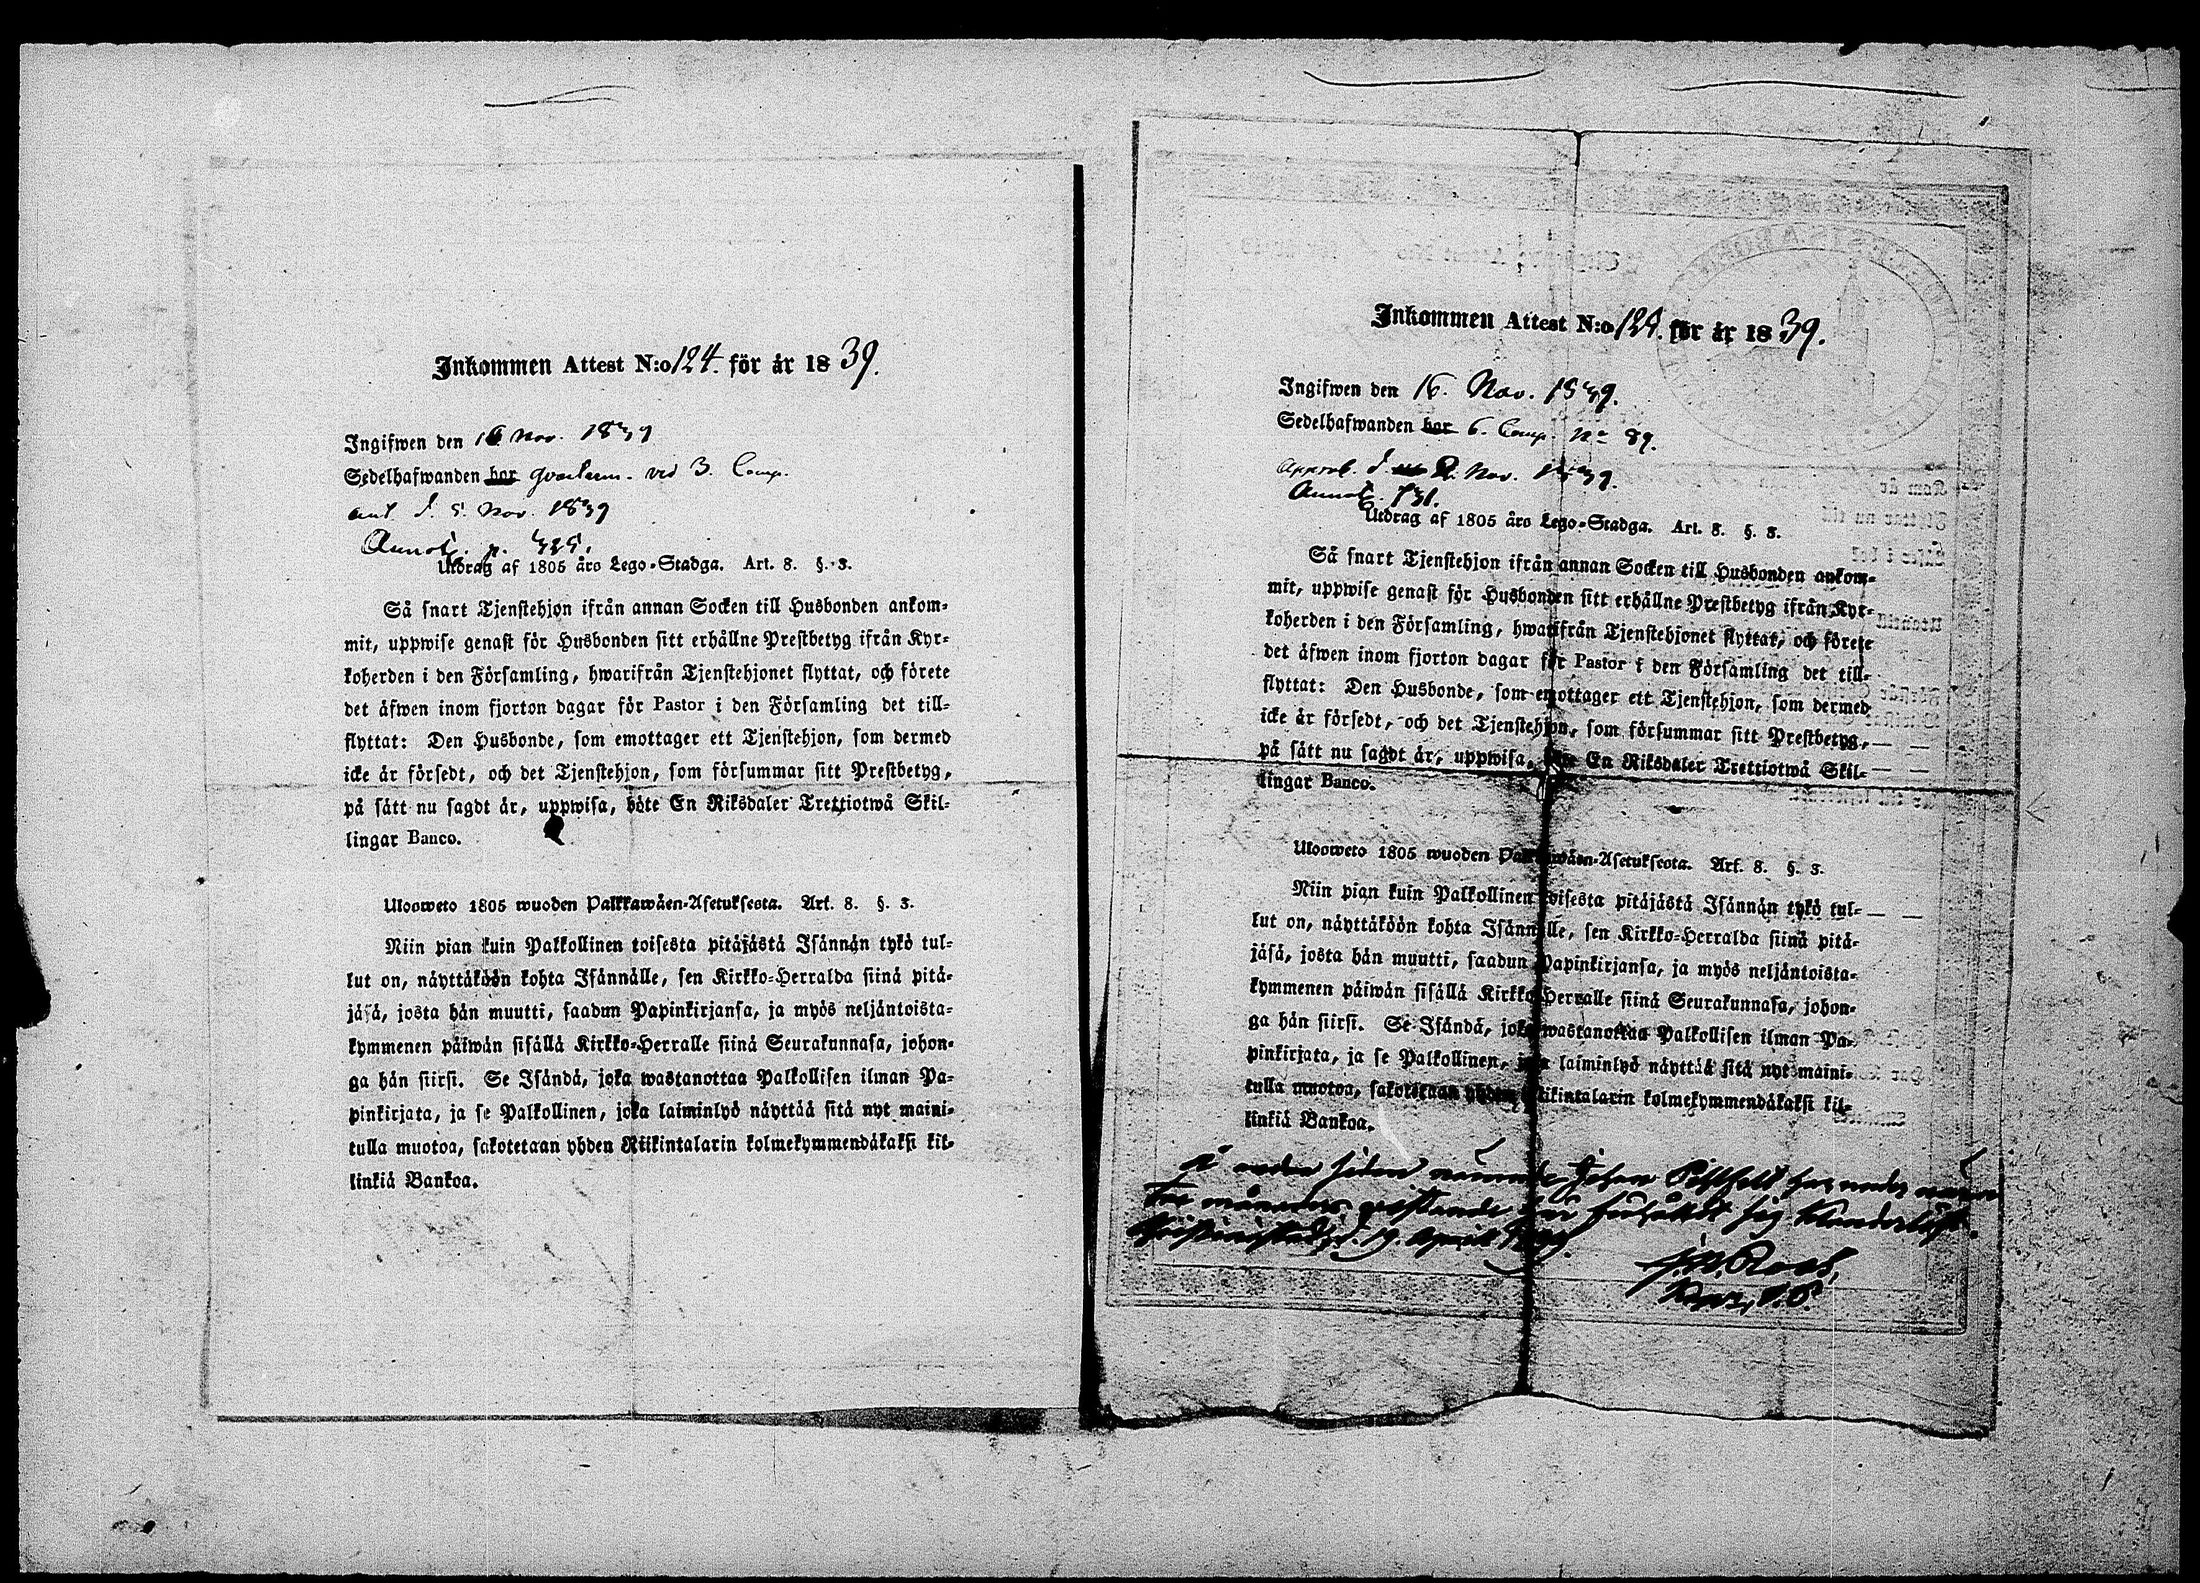 Inkommen Attest N:o 124. för år 1839.
Ingifwen den 16 Nov. 1839
Sedelhafwanden bor qvarteren. vid 3. Comp.
ant. d. 5. Nov. 1839
Annot. p. 325.
Utdrag af 1805 års Lego-Stadga. Art. 8. §. 3.
Så snart Tjenstehjon ifrån annan Socken till Husbonden ankom-
mit, uppwise genast för Husbonden sitt erhållne Prestbetyg ifrån Kyr-
koherden i den Församling, hwarifrån Tjenstehjonet flyttat, och förete
det äfwen inom fjorton dagar för Pastor i den Församling det till-
flyttat: Den Husbonde, som emottager ett Tjenstehjon, som dermed
icke är försedt, och det Tjenstehjon, som försummar sitt Prestbetyg,
på sätt nu sagdt är, uppwisa, böte En Riksdaler Trettiotwå Skil-
lingar Banco.
Uloosweto 1805 wuoden Palkkawäen-Asetuksesta. Art. 8. §. 3.
Niin pian kuin Palkollinen toisesta pitäjästä Isännän tykö tul-
lut on, näyttäköön kohta Isännälle, sen Kirkko-Herralda siinä pitä-
jäsä, josta hän muutti, saadun Papinkirjansa, ja myös neljäntoista-
kymmenen päiwän sisällä Kirkko-Herralle siinä Seurakunnasa, johon-
ga hän siirsi. Se Isändä, joka wastanottaa Palkollisen ilman Pa-
pinkirjata, ja se Palkollinen, joka laiminlyö näyttää sitä nyt maini-
tulla muotoa, sakotetaan yhden Riikintalarin kolmekymmendäkaksi kil-
linkiä Bankoa.
Inkommen Attest N:o 125. för år 1839.
Ingifwen den 16. Nov. 1839.
Sedelhafwanden bor 6. Comp. No 89.
Approb. d. 2. Nov. 1839.
Annot. 731.
Utdrag af 1805 års Lego-Stadga. Art. 8. §. 3.
Så snart Tjenstehjon ifrån annan Socken till Husbonden ankom-
mit, uppwise genast för Husbonden sitt erhållne Prestbetyg ifrån Kyr-
koherden i den Församling, hwarifrån Tjenstehjonet flyttat, och förete
det äfwen inom fjorton dagar för Pastor i den Församling det till-
flyttat: Den Husbonde, som emottager ett Tjenstehjon, som dermed
icke är försedt, och det Tjenstehjon, som försummar sitt Prestbetyg,
på sätt nu sagdt är, uppwisa, böte En Riksdaler Trettiotwå Skil-
lingar Banco.
Uloosweto 1805 wuoden Palkkawäen-Asetuksesta. Art. 8. §. 3.
Niin pian kuin Palkollinen toisesta pitäjästä Isännän tykö tul-
lut on, näyttäköön kohta Isännälle, sen Kirkko-Herralda siinä pitä-
jäsä, josta hän muutti, saadun Papinkirjansa, ja myös neljäntoista-
kymmenen päiwän sisällä Kirkko-Herralle siinä Seurakunnasa, johon-
ga hän siirsi. Se Isändä, joka wastanottaa Palkollisen ilman Pa-
pinkirjata, ja se Palkollinen, joka laiminlyö näyttää sitä nyt maini-
tulla muotoa, sakotetaan yhden Riikintalarin kolmekymmendäkaksi kil-
linkiä Bankoa.
Å andra sidan nämnde Johan har under
Tre månaders vistande här förhållit sig klanderlöst.
Christinestad, d. 19. April
Roos,